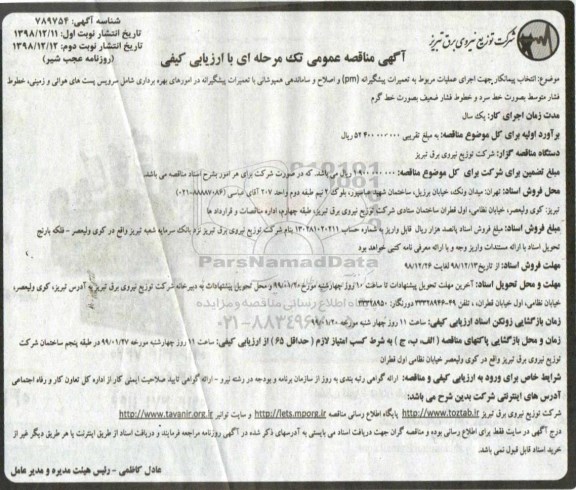 شناسه آگهی: ۷۸۹۷۵۴
تاریخ انتشار نوبت اول: ۱۳۹۸/۱۲/۱۱
تاریخ انتشار نوبت دوم: ۱۳۹۸/۱۲/۱۲
(روزنامه عجب شیر)
شرکت توزیع نیروی برق تبریز
آگهی مناقصه عمومی تک مرحله ای با ارزیابی کیفی
موضوع: انتخاب پیمانکار جهت اجرای عملیات مربوط به تعمیرات پیشگیرانه (pm) و اصلاح و ساماندهی همپوشانی با تعمیرات پیشگیرانه در امورهای بهره برداری شامل سرویس پست های هوائی و زمینی، خطوط
فشار متوسط بصورت خط سرد و خطوط فشار ضعیف بصورت خط گرم
مدت زمان اجرای کار: یک سال
برآورد اولیه برای کل موضوع مناقصه: به مبلغ تقریبی ۵۲۴۰۰۰۰۰۰۰۰ ریال
دستگاه مناقصه گزار: شرکت توزیع نیروی برق تبریز
مبلغ تضمین برای شرکت برای کل موضوع مناقصه: ۱۹۰۰۰۰۰۰۰۰ ریال می باشد. که در صورت شرکت برای هر امور بشرح اسناد مناقصه می باشد.
محل فروش اسناد: تهران: میدان ونک، خیابان برزیل، ساختمان شهید عباسپور، بلوک ۲ نیم طبقه دوم واحد ۲۰۷ آقای عباسی (۸۸۸۸۷۰۸۶-۰۲۱)
تبریز: کوی ولیعصر، خیابان نظامی، اول قطران ساختمان ستادی شرکت توزیع نیروی برق تبریز، طبقه چهارم، اداره مناقصات و قرارداد ها
مبلغ فروش اسناد: مبلغ فروش اسناد پانصد هزار ریال قابل واریز به شماره حساب ۱۳۰۲۸۱۰۲۰۲۱۱ بنام شرکت توزیع نیروی برق تبریز نزد بانک سرمایه شعبه تبریز واقع در کوی ولیعصر - فلکه بارنج
تحویل اسناد با ارائه مستندات واریز وجه و با ارائه معرفی نامه کتبی خواهد بود
مهلت فروش اسناد: از تاریخ ۹۸/۱۲/۱۳ لغایت ۹۸/۱۲/۲۶
مهلت و محل تحویل اسناد: آخرین مهلت تحویل پیشنهادات تا ساعت ۱۰ روز چهارشنبه مورخ ۹۹/۰۱/۲۰ و محل تحویل پیشنهادات به دبیرخانه شرکت توزیع نیروی برق تبریز به آدرس تبریز، کوی ولیعصر،
خیابان نظامی، اول خیابان قطران، تلفن ۴۹-۳۳۳۲۸۹۴۶ دورنگار: ۳۳۳۲۸۹۵۰
زمان بازگشایی زونکن اسناد ارزیابی کیفی: ساعت ۱۱ روز چهار شنبه مورخه ۹۹/۰۱/۲۰
زمان و محل بازگشایی پاکتهای مناقصه (الف، ب، ج) به شرط کسب امتیاز لازم (حداقل ۶۵) از ارزیابی کیفی: ساعت ۱۱ روز چهارشنبه مورخه ۹۹/۰۱/۲۷ در طبقه پنجم ساختمان شرکت
توزیع نیروی برق تبریز واقع در کوی ولیعصر خیابان نظامی اول قطران
شرایط خاص برای ورود به ارزیابی کیفی و مناقصه: ارائه گواهی رتبه بندی به روز از سازمان برنامه و بودجه در رشته نیرو - ارائه گواهی تایید صلاحیت ایمنی کار از اداره کل تعاون کار و رفاه اجتماعی
آدرس های اینترنتی شرکت بدین شرح می باشد:
شرکت توزیع نیروی برق تبریز http://www.toztab.ir پایگاه اطلاع رسانی مناقصه http://iets.mporg.ir و سایت توانیر http://www.tavanir.org.ir
درج آگهی در سایت فقط برای اطلاع رسانی بوده و مناقصه گران جهت دریافت اسناد می بایستی به آدرسهای ذکر شده در آگهی روزنامه مراجعه فرمایند و دریافت اسناد از طریق اینترنت یا هر طریق دیگر غیر از
خرید اسناد قابل قبول نمی باشد.
عادل کاظمی - رئیس هیئت مدیره و مدیر عامل
ParsNamadData
پایگاه اطلاع رسانی مناقصه و مزایده